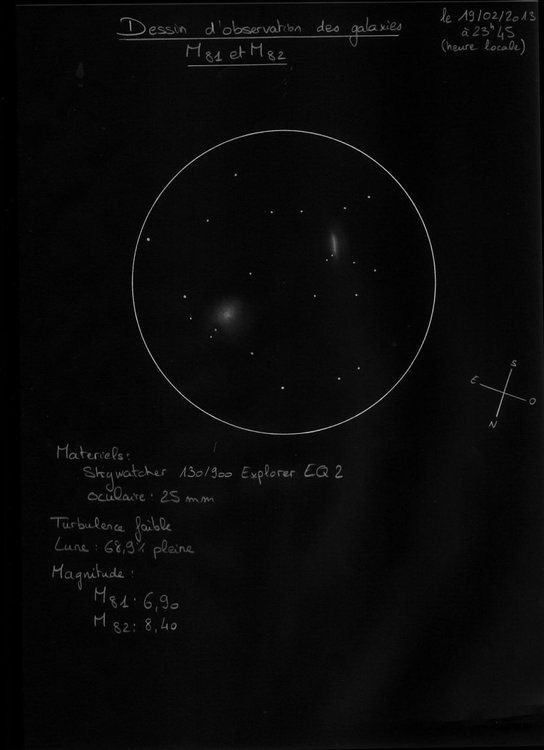 Dessin d'observation des galaxies
M81 et M82
le 19/02/2013
à 23h45
(heure locale)
S
E
O
N
Materiels:
Skywatcher 130/900 Explorer EQ2
oculaire: 25 mm
Turbulence faible
Lune: 68,9% pleine
Magnitude:
M81: 6,90
M82: 8,40